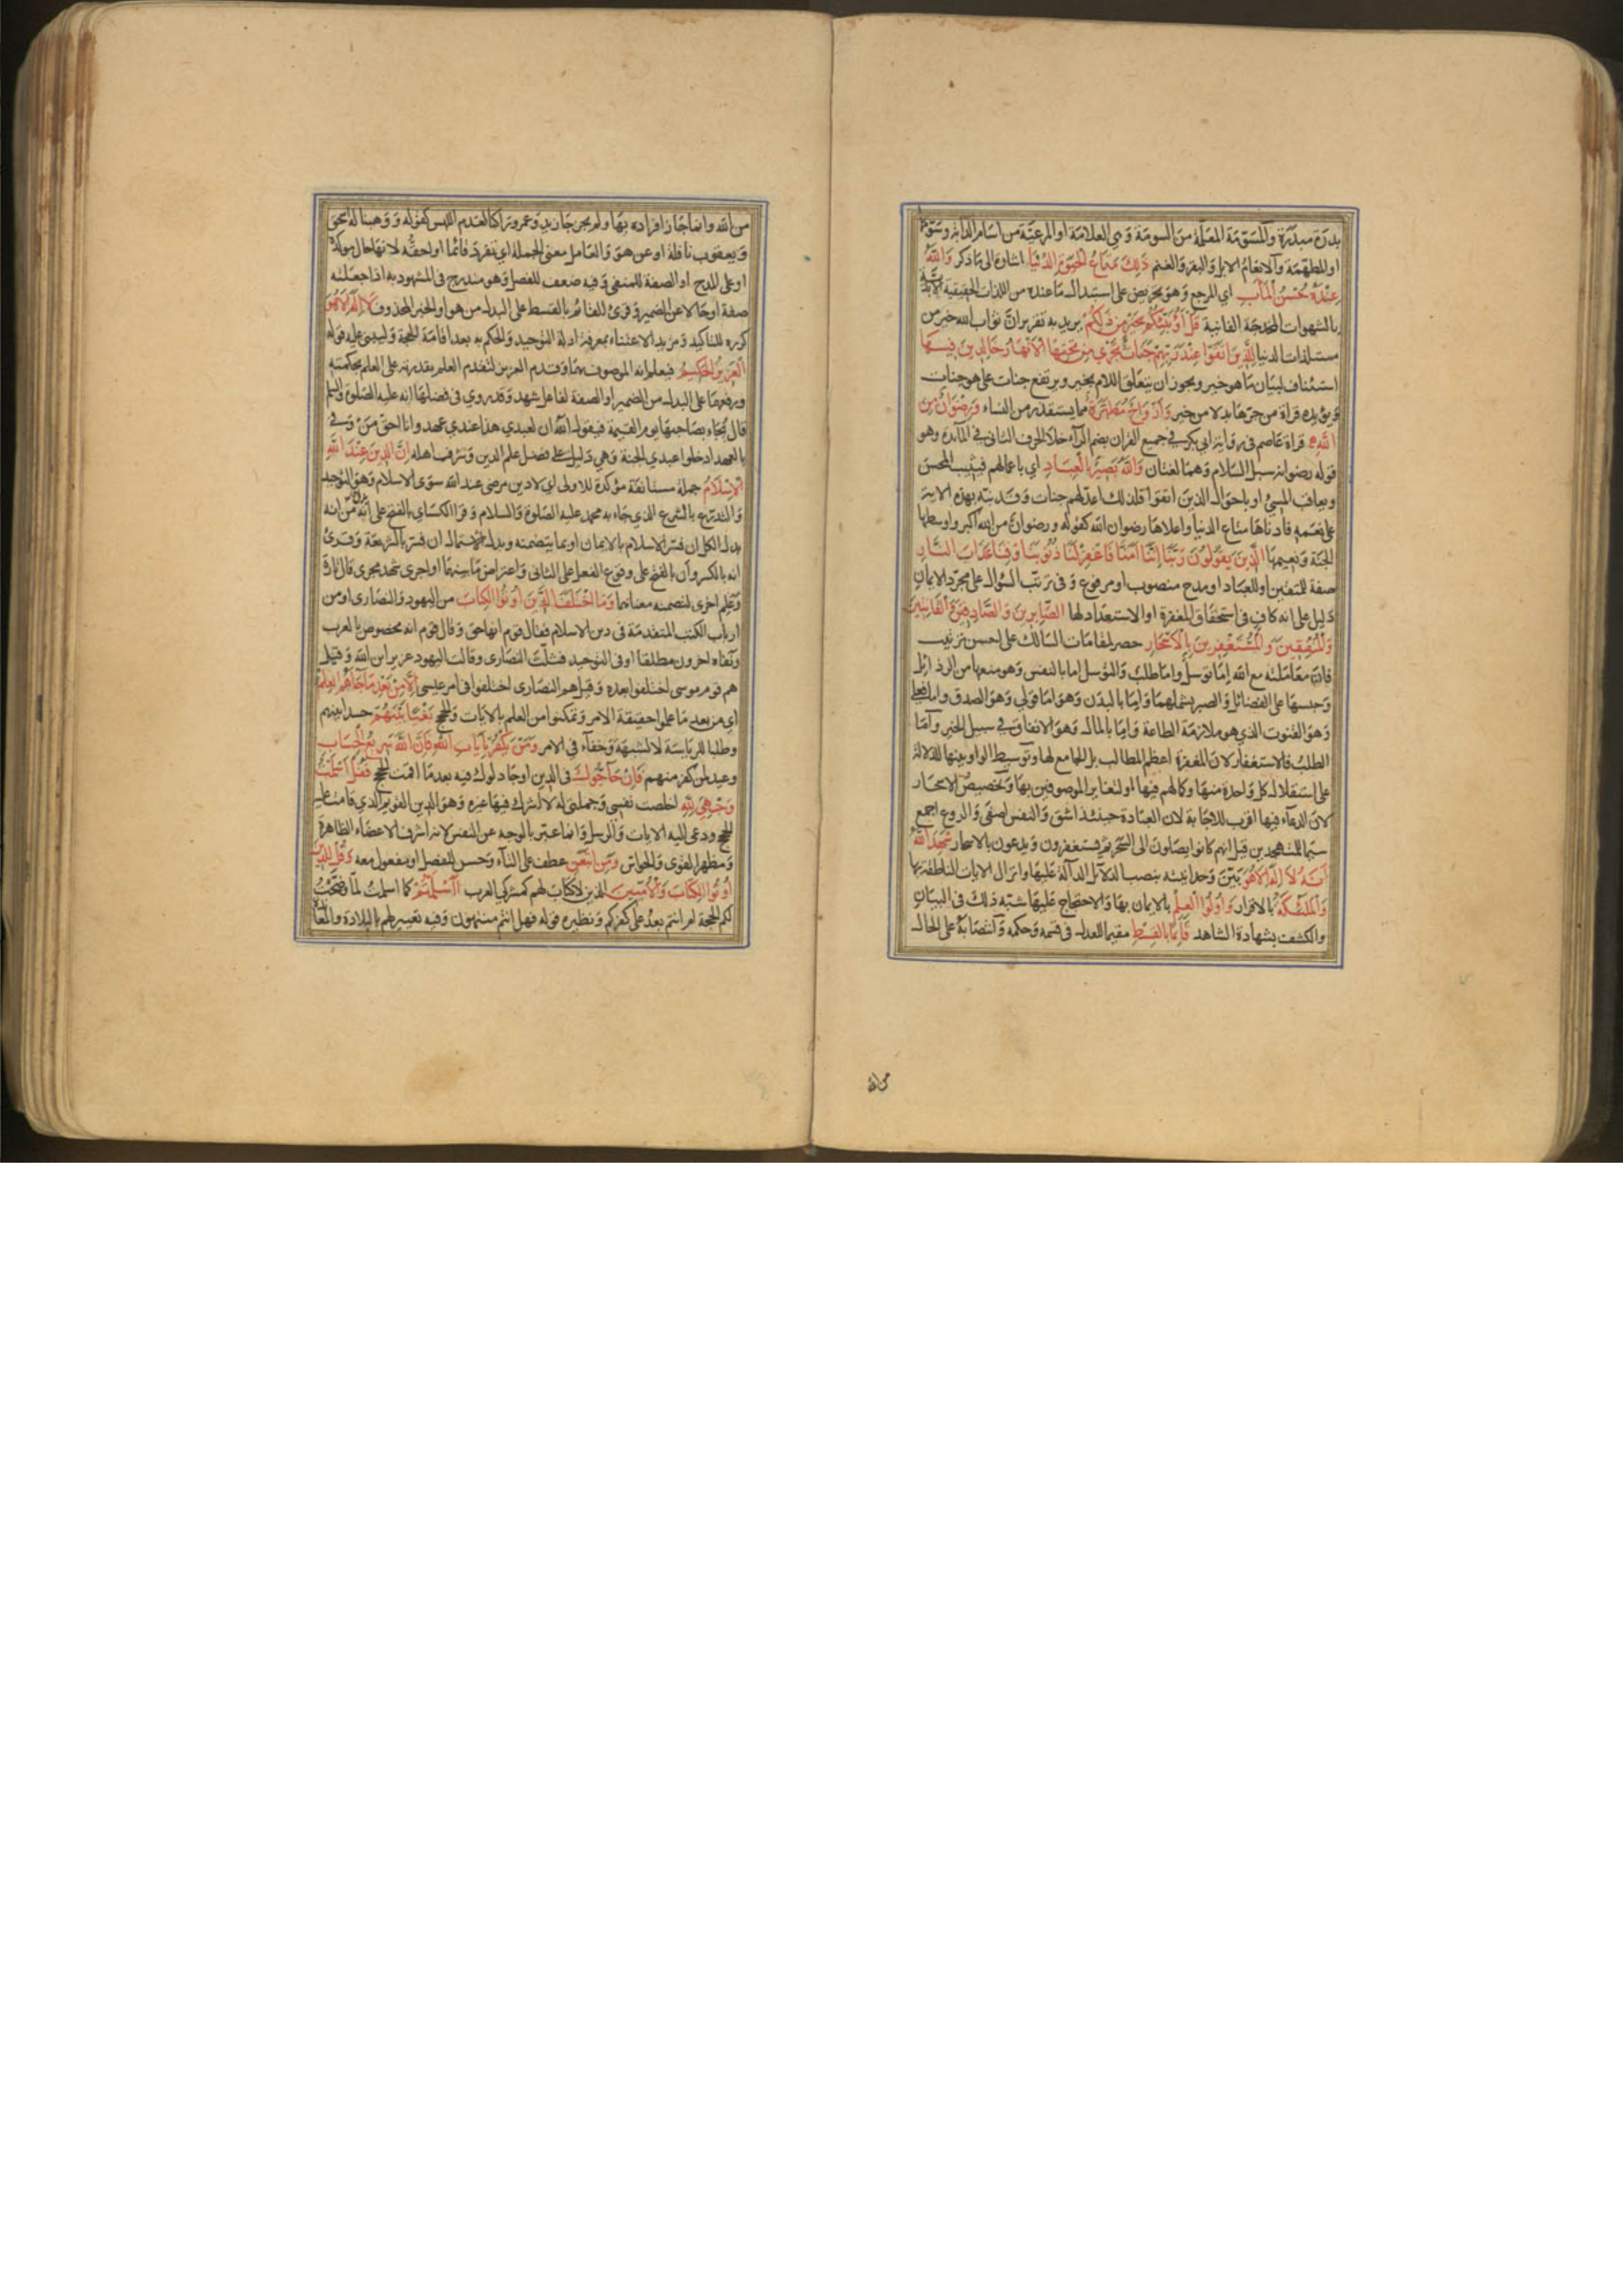 بدرة مبدرة والمسومة المعلمة من السومة وهي العلامة او المرعية من اسام الدابة وسومها
او المطهمة والانعام الابل والبقر والغنم ذَلِكَ مَتَاعُ الْحَيٰوةِ الدُّنْيَا اشارة الى ما ذكر وَاللَّهُ
عِنْدَهُ حُسْنُ الْمَآبِ اي المرجع وهو تحريض على استبدال ما عنده من اللذات الحقيقية الابدية
بالشهوات المخدجة الفانية قُلْ أَؤُنَبِّئُكُمْ بِخَيْرٍ مِنْ ذَلِكُمْ يريد به تقرير ان ثواب الله خير من
مستلذات الدنيا لِلَّذِينَ اتَّقَوْا عِنْدَ رَبِّهِمْ جَنَّاتٌ تَجْرِي مِنْ تَحْتِهَا الْأَنْهَارُ خَالِدِينَ فِيهَا
استئناف لبيان ما هو خير ويجوز ان يتعلق اللام بخير ويرتفع جنات على هو جنات
ويؤيده قراة من جرها بدلا من خير وَأَزْوَاجٌ مُطَهَّرَةٌ مما يستقذر من النساء وَرِضْوَانٌ مِنَ
اللَّهِ قراة عاصم في رواية ابي بكر في جميع القران بضم الرآء خلا الحرف الثاني في المآئدة وهو
قوله رضوانه سبل السلام وهما لغتان وَاللَّهُ بَصِيرٌ بِالْعِبَادِ اي باعمالهم فيثيب المحسن
ويعاقب المسيئ او باحوال الذين اتقوا فلذلك اعد لهم جنات وقد نبه بهذه الاية
على نعمه فادناها متاع الدنيا واعلاها رضوان الله كقوله ورضوان من الله اكبر واوسطها
الجنة ونعيمها الَّذِينَ يَقُولُونَ رَبَّنَا إِنَّنَا آمَنَّا فَاغْفِرْ لَنَا ذُنُوبَنَا وَقِنَا عَذَابَ النَّارِ
صفة للمتقين او للعباد او مدح منصوب او مرفوع وفي ترتب السؤال على مجرد الايمان
دليل على انه كاف في استحقاق المغفرة او الاستعداد لها الصَّابِرِينَ وَالصَّادِقِينَ وَالْقَانِتِينَ
وَالْمُنْفِقِينَ وَالْمُسْتَغْفِرِينَ بِالْأَسْحَارِ حصر لمقامات السالك على احسن ترتيب
فان معاملته مع الله اما توسل واما طلب والتوسل اما بالنفس وهو منعها من الرذائل
وحبسها على الفضائل والصبر يشملهما واما بالبدن وهو اما قولي وهو الصدق واما فعلي
وهو القنوت الذي هو ملازمة الطاعة واما بالمال وهو الانفاق في سبيل الخير واما
الطلب فالاستغفار لان المغفرة اعظم المطالب بل الجامع لها وتوسيط الواو بينها للدلالة
على استقلال كل واحدة منها وكالهم فيها او لتغاير الموصوفين بها وتخصيص الاسحار
لان الدعآء فيها اقرب للاجابة لان العبادة حينئذ اشق والنفس اصفى والروع اجمع
سيما للمتهجدين قيل انهم كانوا يصلون الى السحر ثم يستغفرون ويدعون بالاسحار شَهِدَ اللَّهُ
أَنَّهُ لَا إِلَهَ إِلَّا هُوَ بين وحدانيته بنصب الدلآئل الدآلة عليها وانزال الايات الناطقة بها
وَالْمَلٰئِكَةُ بالاقرار وَأُولُوا الْعِلْمِ بالايمان بها والاحتجاج عليها شبه ذلك في البيان
والكشف بشهادة الشاهد قَائِمًا بِالْقِسْطِ مقيما للعدل في قسمه وحكمه وانتصابه على الحال
من الله
من الله وانما جاز افراده بها ولم يجز جا زيد وعمرو راكبا لعدم اللبس كقوله ووهبنا له اسحق
ويعقوب نافلة او عن هو والعامل معنى الجملة اي تفرد قائما او احقه لانها حال موكدة
او على المدح او الصفة للمنفي وفيه ضعف للفصل وهو مندرج في المشهود به اذا جعلته
صفة او حالا عن الضمير وقرئ القائم بالقسط على البدل من هو او الخبر المحذوف لَا إِلَهَ إِلَّا هُوَ
كرره للتاكيد ومزيد الاعتناء بمعرفة ادلة التوحيد والحكم به بعد اقامة الحجة وليبني عليه قوله
الْعَزِيزُ الْحَكِيمُ فيعلم انه الموصوف بهما وقدم العزيز لتقدم العلم بقدرته على العلم بحكمته
ورفعهما على البدل من الضمير او الصفة لفاعل شهد وقد روي في فضلها انه عليه الصلوة والسلم
قال يجاء بصاحبها يوم القيمة فيقول الله ان لعبدي هذا عندي عهد وانا احق من وفى
بالعهد ادخلوا عبدي الجنة وهي دليل على فضل علم الدين وشرف اهله إِنَّ الدِّينَ عِنْدَ اللَّهِ
الْإِسْلَامُ جملة مستانفة مؤكدة للاولى اي لا دين مرضي عند الله سوى الاسلام وهو التوحيد
والتدرع بالشرع الذي جاء به محمد عليه الصلوة والسلام وقرا الكسائي بالفتح على انه من انه
بدل الكل ان فسر الاسلام بالايمان او بما يتضمنه وبدل الاشتمال ان فسر بالشريعة وقرئ
انه بالكسر وان بالفتح على وقوع الفعل على الثاني واعتراض ما بينهما او اجرى شهد مجرى قال تارة
وعلم اخرى لتضمنه معناهما وَمَا اخْتَلَفَ الَّذِينَ أُوتُوا الْكِتَابَ من اليهود والنصارى او من
ارباب الكتب المتقدمة في دين الاسلام فقال قوم انها حق وقال قوم انه مخصوص بالعرب
ونفاه اخرون مطلقا او في التوحيد فثلت النصارى وقالت اليهود عزير ابن الله وقيل
هم قوم موسى اختلفوا بعده وقيل هم النصارى اختلفوا في امر عيسى إِلَّا مِنْ بَعْدِ مَا جَاءَهُمُ الْعِلْمُ
اي من بعد ما علموا حقيقة الامر وتمكنوا من العلم بالايات والحجج بَغْيًا بَيْنَهُمْ حسدا بينهم
وطلبا للرياسة لا لشبهة وخفآء في الامر وَمَنْ يَكْفُرْ بِآيَاتِ اللَّهِ فَإِنَّ اللَّهَ سَرِيعُ الْحِسَابِ
وعيد لمن كفر منهم فَإِنْ حَاجُّوكَ في الدين او جادلوك فيه بعد ما اقمت الحجج فَقُلْ أَسْلَمْتُ
وَجْهِيَ لِلَّهِ اخلصت نفسي وجملتي له لا اشرك فيها غيره وهو الدين القويم الذي قامت عليه
الحجج ودعى اليه الايات والرسل وانما عبر بالوجه عن النفس لانه اشرف الاعضاء الظاهرة
ومظهر القوى والحواس وَمَنِ اتَّبَعَنِ عطف على التآء وحسن للفصل او مفعول معه وَقُلْ لِلَّذِينَ
أُوتُوا الْكِتَابَ وَالْأُمِّيِّينَ الذين لا كتاب لهم كمشركي العرب أَأَسْلَمْتُمْ كما اسلمت لما وضحت
لكم الحجة ام انتم بعد على كفركم ونظيره قوله فهل انتم منتهون وفيه تعيير لهم بالبلادة والمعاندة